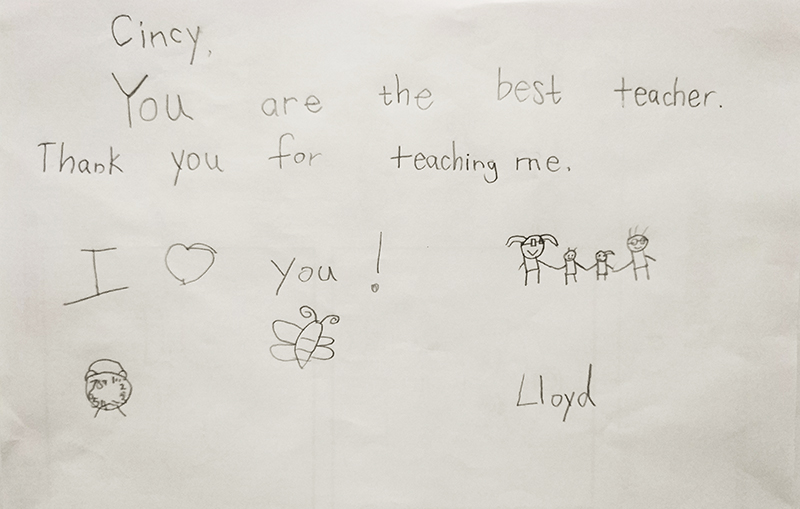 Cincy,
You are the best teacher.
Thank you for teaching me.
I ♡ you!
Lloyd